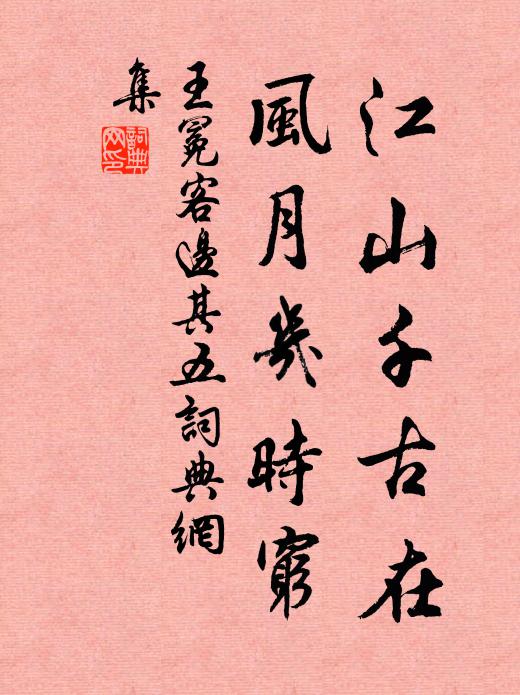 江山千古在
風月幾時窮
王冕客邊其五詞典網
集
詞典
網印